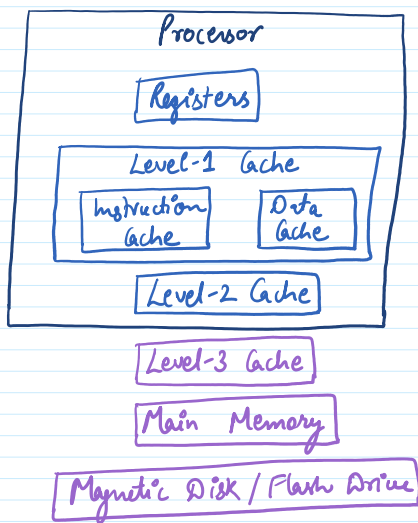 Processor
Registers
Level-1 Cache
Instruction Data
Cache Cache
Level-2 Cache
Level-3 Cache
Main Memory
Magnetic Disk / Flash Drive